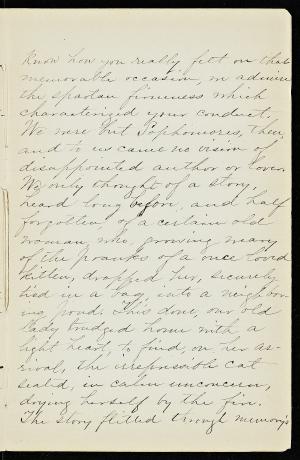 know how you really felt on that
memorable occasion, we admire
the spartan firmness which
characterized your conduct.
We were but Sophomores, then,
and to us came no vision of
disappointed author or lover.
We only thought of a story,
heard long before, and half
forgotten, of a certain old
woman who, growing weary
of the pranks of a once loved
kitten, dropped her, securely
tied in a bag, into a neighbor-
ing pond. This done, our old
lady trudged home with a
light heart, to find on her ar-
rival, the irrepressible cat
seated, in calm unconcern,
drying herself by the fire.
The story flitted through memory's